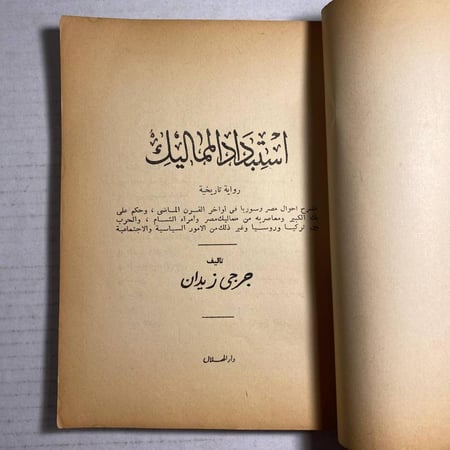 استبداد المماليك
رواية تاريخية
تشرح احوال مصر وسوريا فى أواخر القرن الماضى ، وحكم على
بك الكبير ومعاصريه من مماليك مصر وأمراء الشام ، والحرب
بين تركيا وروسيا وغير ذلك من الامور السياسية والاجتماعية
تأليف
جرجى زيدان
دار الهلال